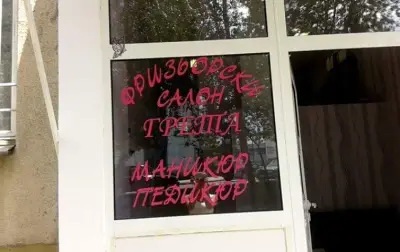 ФРИЗЬОРСКИ
САЛОН
ГРЕТА
МАНИКЮР
ПЕДИКЮР